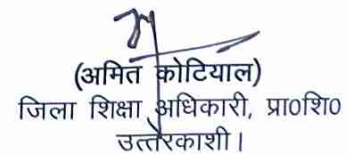 (अमित कोटियाल)
जिला शिक्षा अधिकारी, प्रा०शि०
उत्तरकाशी।